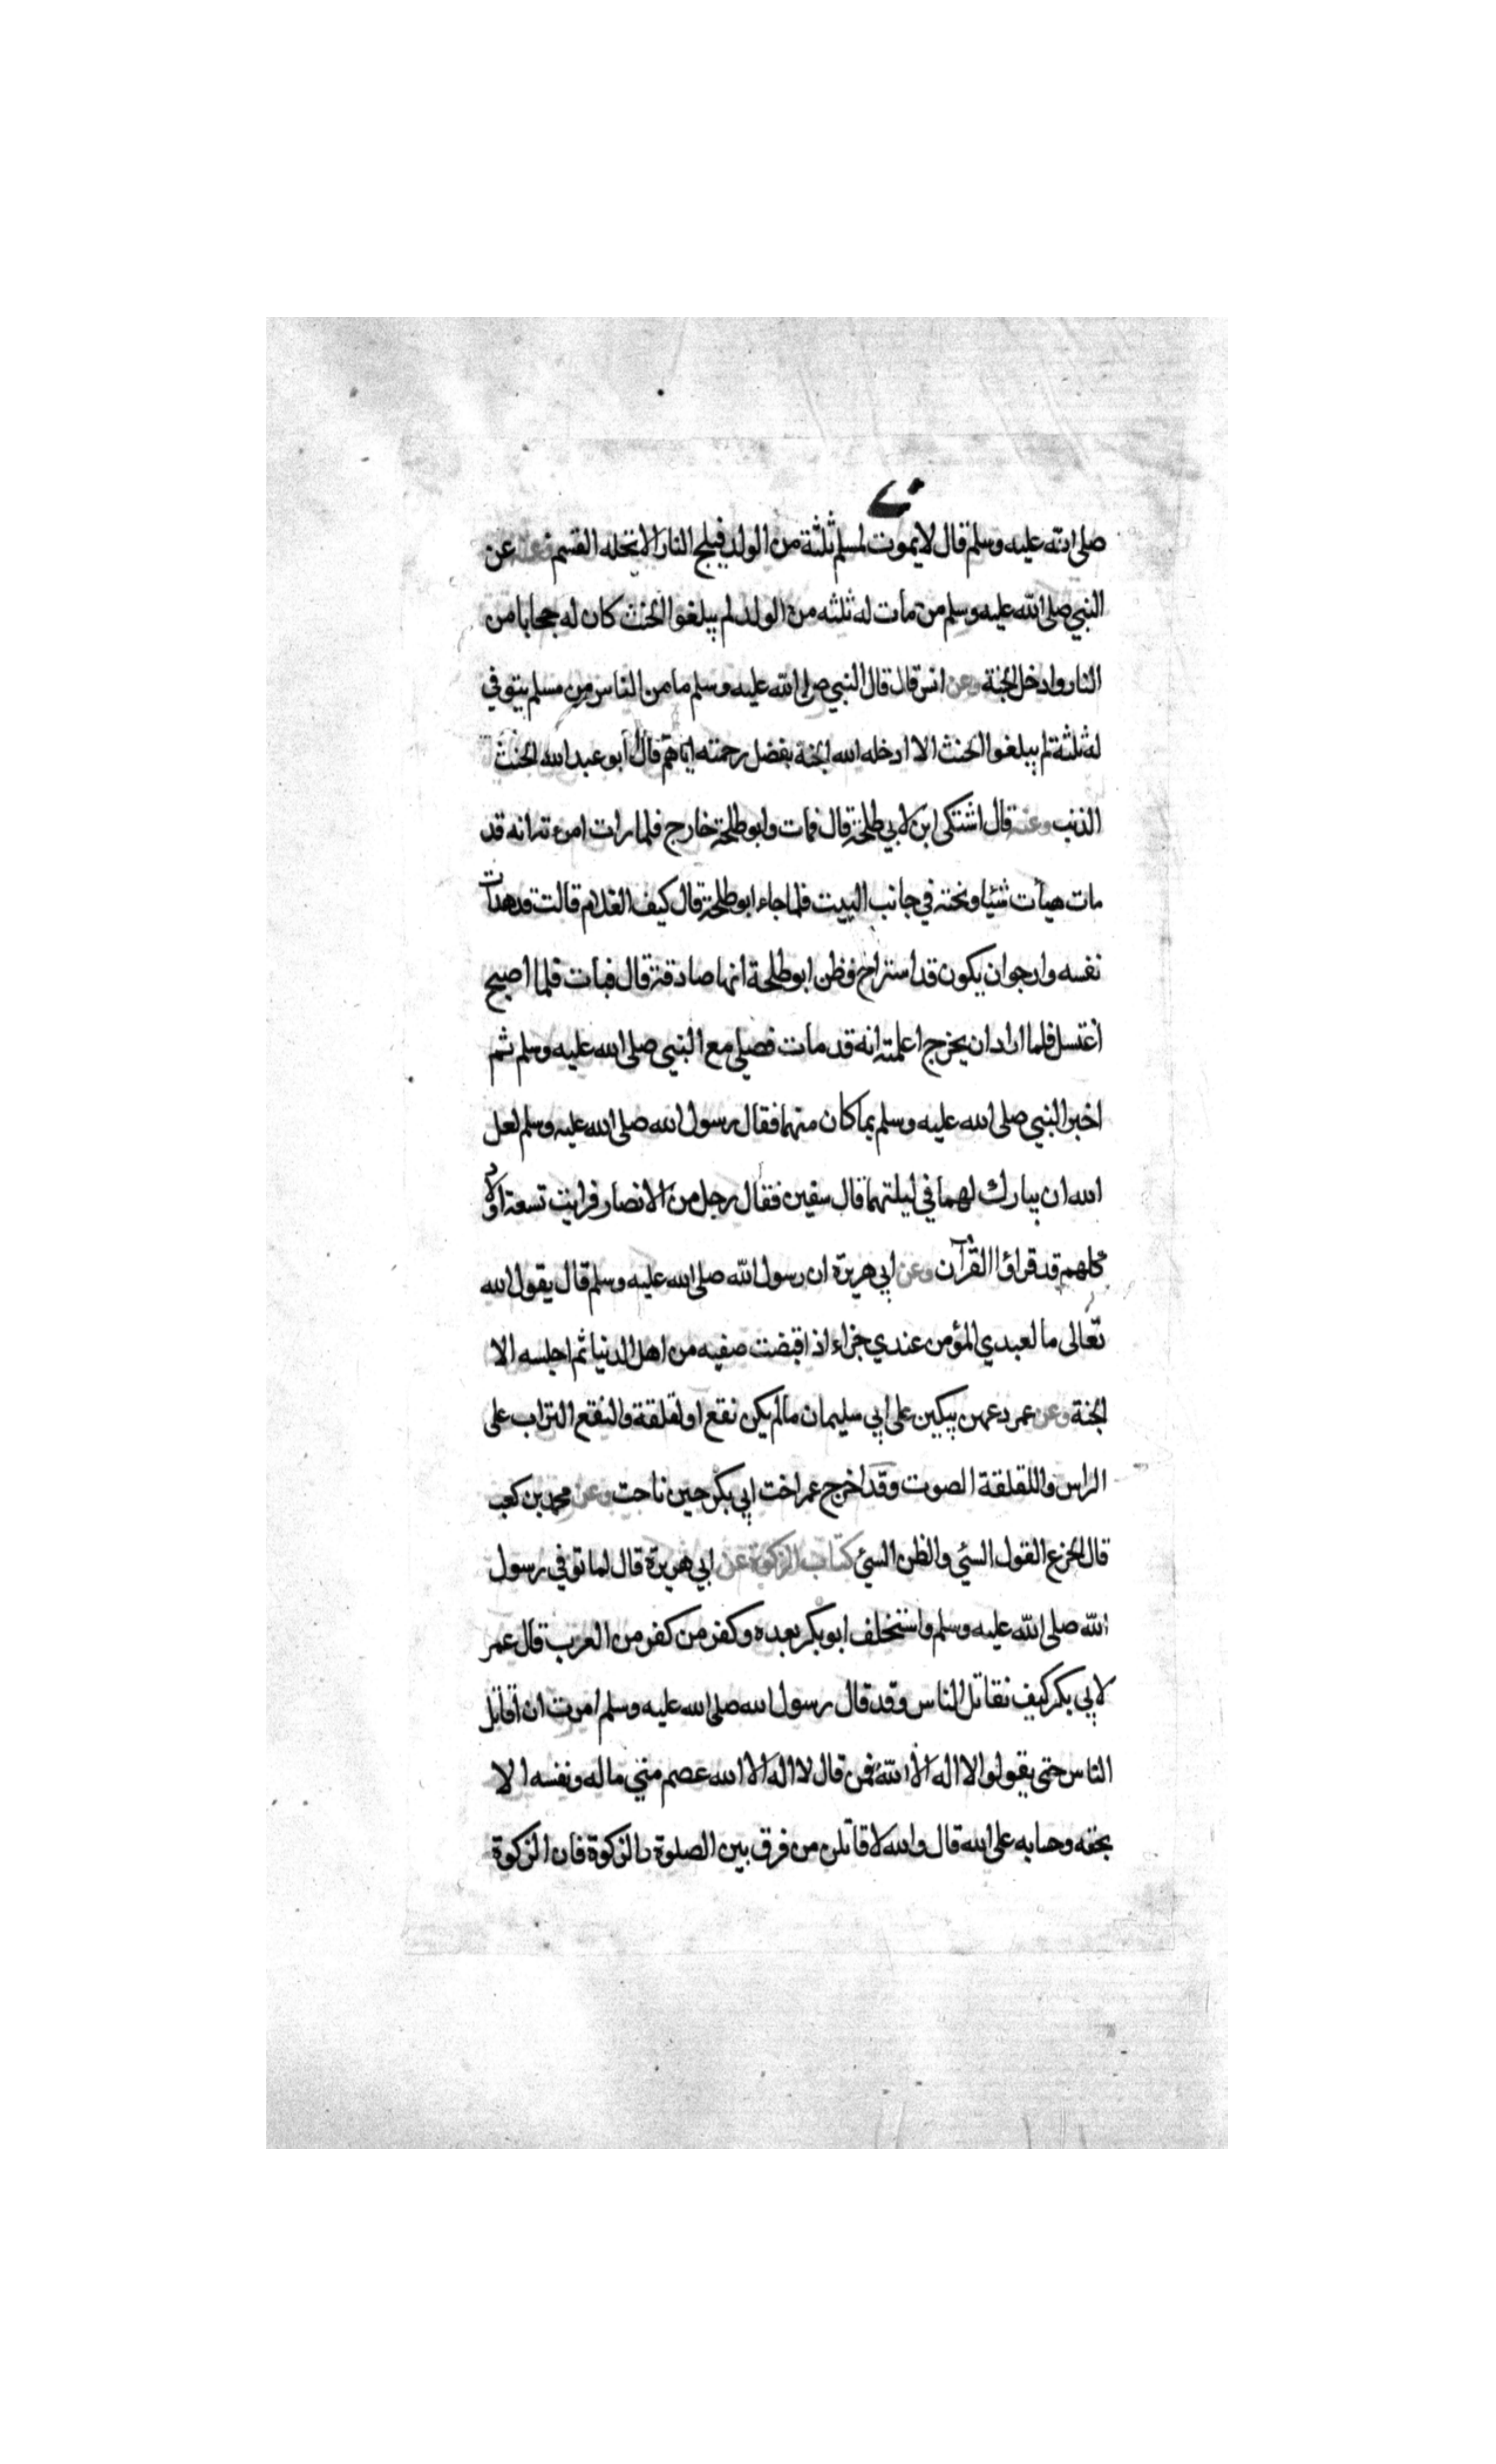 صلى الله عليه وسلم قال لا يموت لمسلم ثلثة من الولد فيلج النار الا تحله القسم وعنه عن
النبي صلى الله عليه وسلم من مات له ثلثه من الولد لم يبلغوا الحنث كان له حجابا من
النار وادخل الجنة وعن انس قال قال النبي صلى الله عليه وسلم ما من الناس من مسلم يتوفي
له ثلثة لم يبلغوا الحنث الا ادخله الله الجنة بفضل رحمته اياهم قال ابو عبد الله الحنث
الذنب وعنه قال اشتكى ابن لابي طلحة قال فمات وابو طلحة خارج فلما رات امرءته انه قد
مات هيأت شيئا ونحته في جانب البيت فلما جاء ابو طلحة قال كيف الغلام قالت قد هدأت
نفسه وارجو ان يكون قد استراح وظن ابو طلحة انها صادقة قال فبات فلما اصبح
اغتسل فلما اراد ان يخرج اعلمته انه قد مات فصلى مع النبي صلى الله عليه وسلم ثم
اخبر النبي صلى الله عليه وسلم بما كان منهما فقال رسول الله صلى الله عليه وسلم لعل
الله ان يبارك لهما في ليلتهما قال سفين فقال رجل من الانصار فرايت تسعة اولاد
كلهم قد قراؤا القرآن وعن ابي هريرة ان رسول الله صلى الله عليه وسلم قال يقول الله
تعالى ما لعبدي المؤمن عندي جزاء اذا قبضت صفيه من اهل الدنيا ثم احلسه الا
الجنة وعن عمر دعهن يبكين على ابي سليمان ما لم يكن نقع او لقلقة والنقع التراب على
الراس واللقلقة الصوت وقد اخرج عمر اخت ابي بكر حين ناحت وعن محمد بن كعب
قال الجزع القول السيئ والظن السيئ كتاب الزكوة عن ابي هريرة قال لما توفي رسول
الله صلى الله عليه وسلم واستخلف ابو بكر بعده وكفر من كفر من العرب قال عمر
لابي بكر كيف نقاتل الناس وقد قال رسول الله صلى الله عليه وسلم امرت ان اقاتل
الناس حتى يقولوا لا اله الا الله فمن قال لا اله الا الله عصم مني ماله ونفسه الا
بحقه وحسابه على الله قال والله لاقاتلن من فرق بين الصلوة والزكوة فان الزكوة